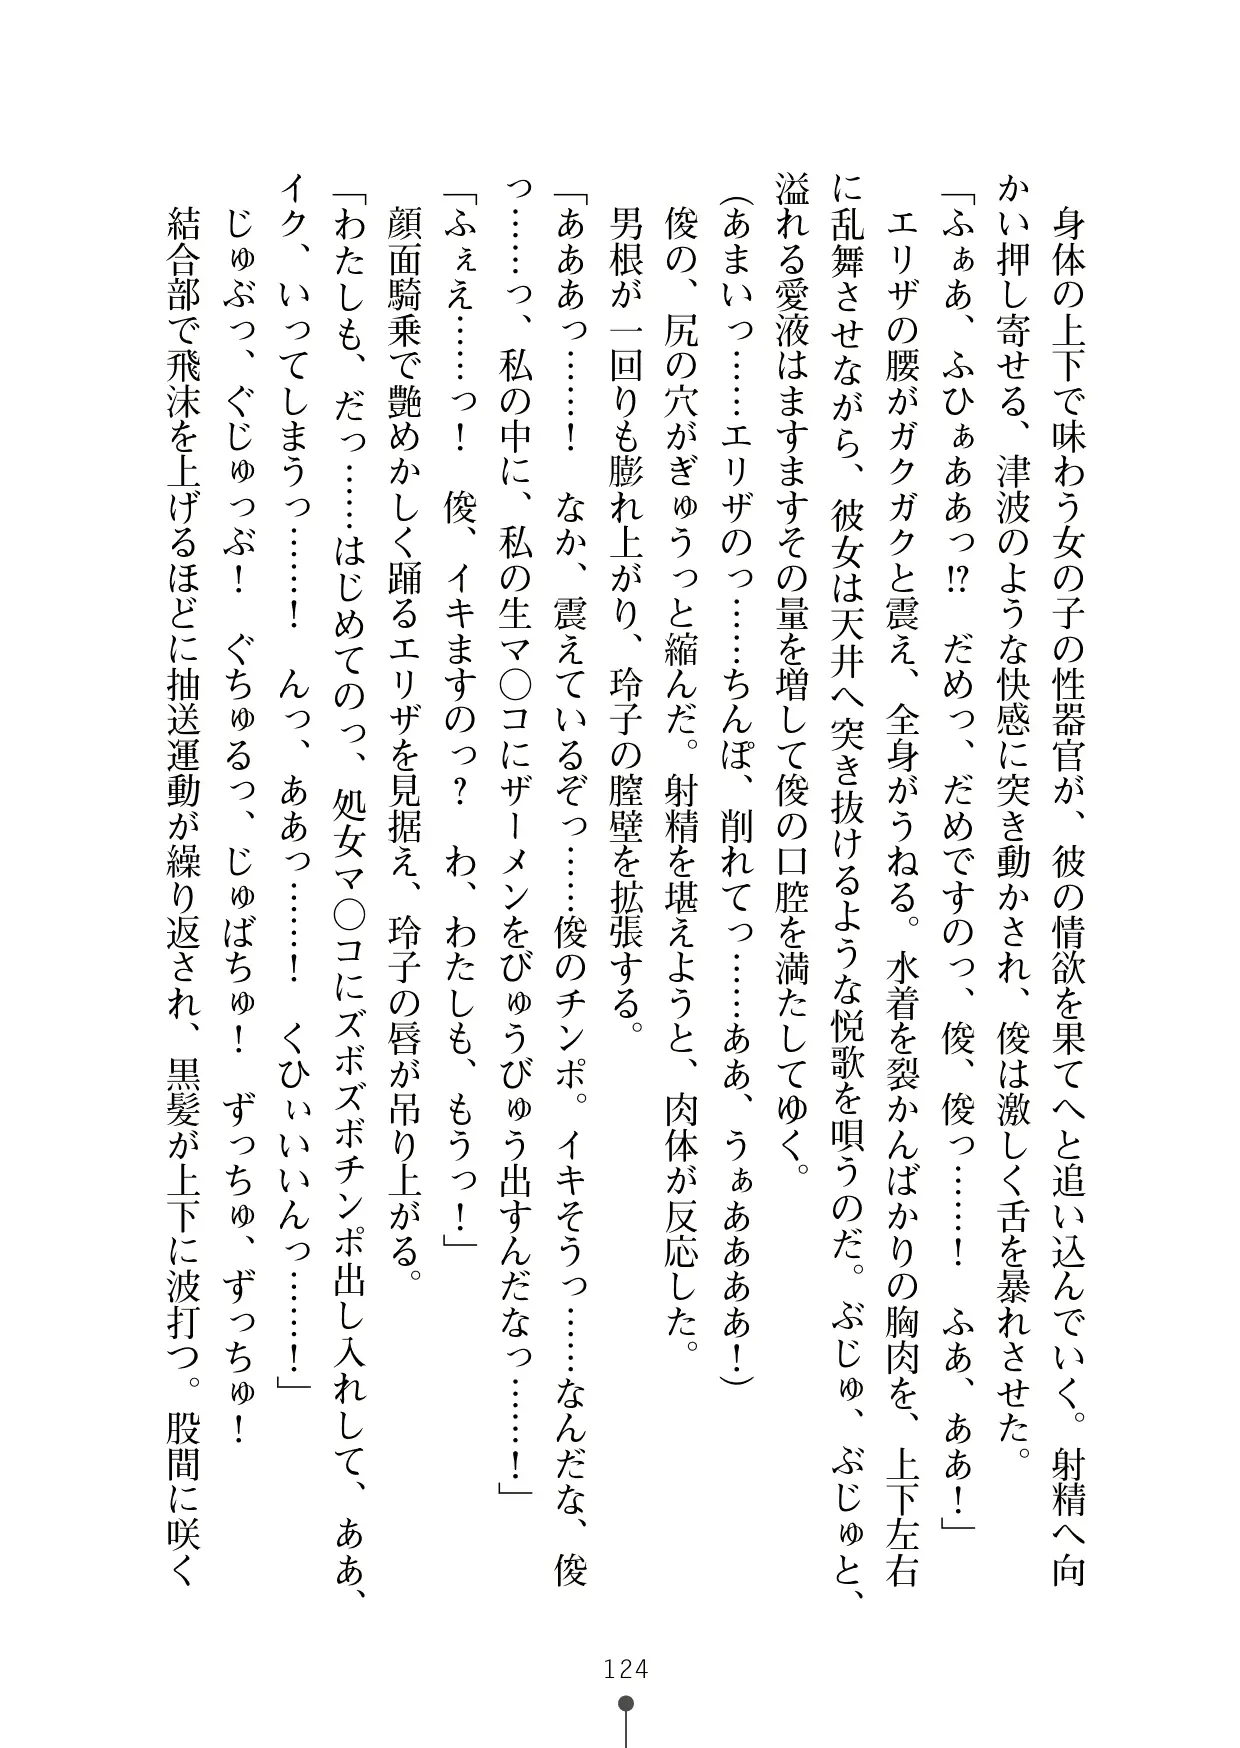 身体の上下で味わう女の子の性器官が、彼の情欲を果てへと追い込んでいく。射精へ向
かい押し寄せる、津波のような快感に突き動かされ、俊は激しく舌を暴れさせた。
「ふぁあ、ふひぁああっ⁉　だめっ、だめですのっ、俊、俊っ……！　ふあ、ああ！」
エリザの腰がガクガクと震え、全身がうねる。水着を裂かんばかりの胸肉を、上下左右
に乱舞させながら、彼女は天井へ突き抜けるような悦歌を唄うのだ。ぶじゅ、ぶじゅと、
溢れる愛液はますますその量を増して俊の口腔を満たしてゆく。
（あまいっ……エリザのっ……ちんぽ、削れてっ……ああ、うぁああああ！）
俊の、尻の穴がぎゅうっと縮んだ。射精を堪えようと、肉体が反応した。
男根が一回りも膨れ上がり、玲子の膣壁を拡張する。
「あああっ……！　なか、震えているぞっ……俊のチンポ。イキそうっ……なんだな、俊
っ……っ、私の中に、私の生マ〇コにザーメンをびゅうびゅう出すんだなっ……！」
「ふぇえ……っ！　俊、イキますのっ？　わ、わたしも、もうっ！」
顔面騎乗で艶めかしく踊るエリザを見据え、玲子の唇が吊り上がる。
「わたしも、だっ……はじめてのっ、処女マ〇コにズボズボチンポ出し入れして、ああ、
イク、いってしまうっ……！　んっ、ああっ……！　くひぃいいんっ……！」
じゅぶっ、ぐじゅっぶ！　ぐちゅるっ、じゅばちゅ！　ずっちゅ、ずっちゅ！
結合部で飛沫を上げるほどに抽送運動が繰り返され、黒髪が上下に波打つ。股間に咲く
124